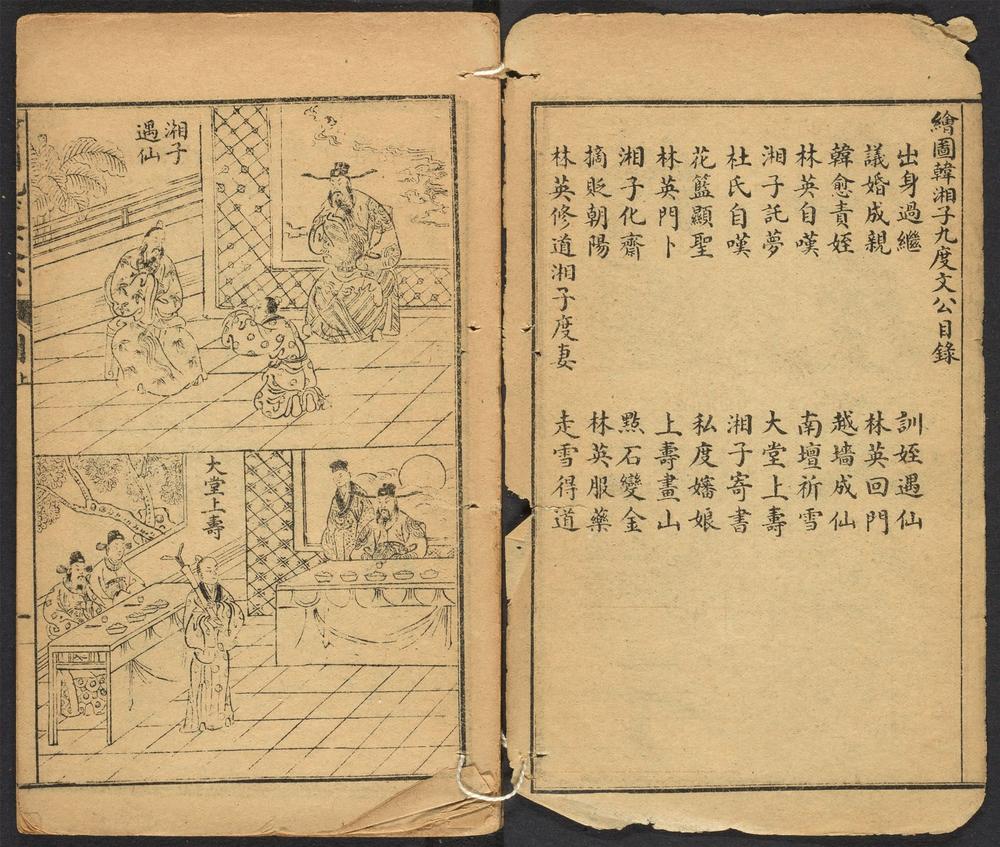 繪圖韓湘子九度文公目錄
出身過繼
訓姪遇仙
議婚成親
林英回門
韓愈責姪
越墻成仙
林英自嘆
南壇祈雪
湘子託夢
大堂上壽
杜氏自嘆
湘子寄書
花籃顯聖
私度嬸娘
林英問卜
上壽畫山
湘子化齋
點石變金
摘貶朝陽
林英服藥
林英修道湘子度妻
走雪得道
湘子
遇仙
大堂上壽